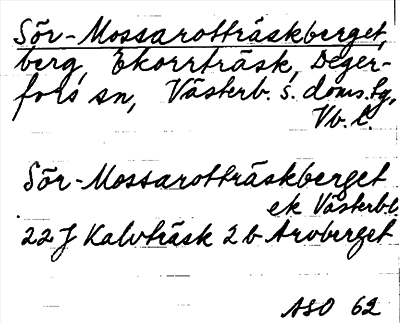 Sör-Mossarotträskberget,
berg, Ekorrträsk, Deger-
fors sn, Västerb. s. doms.sg,
Vb. l.
Sör-Mossarotträskberget
ek Västerb l.
22J Kalvträsk 2b Arvberget
ASO 62